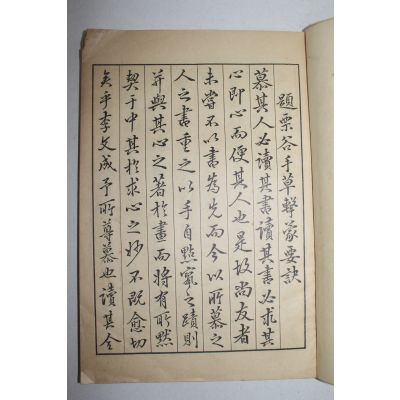 題栗谷手草擊蒙要訣
慕其人必讀其書讀其書必求其
心即心而便其人也是故尚友者
未嘗不以書爲先而今以所慕之
人之書重之以手自點竄之蹟則
并與其心之著於畫而將有所默
契于中其於求心之妙不既愈切
矣乎李文成予所尊慕也讀其全